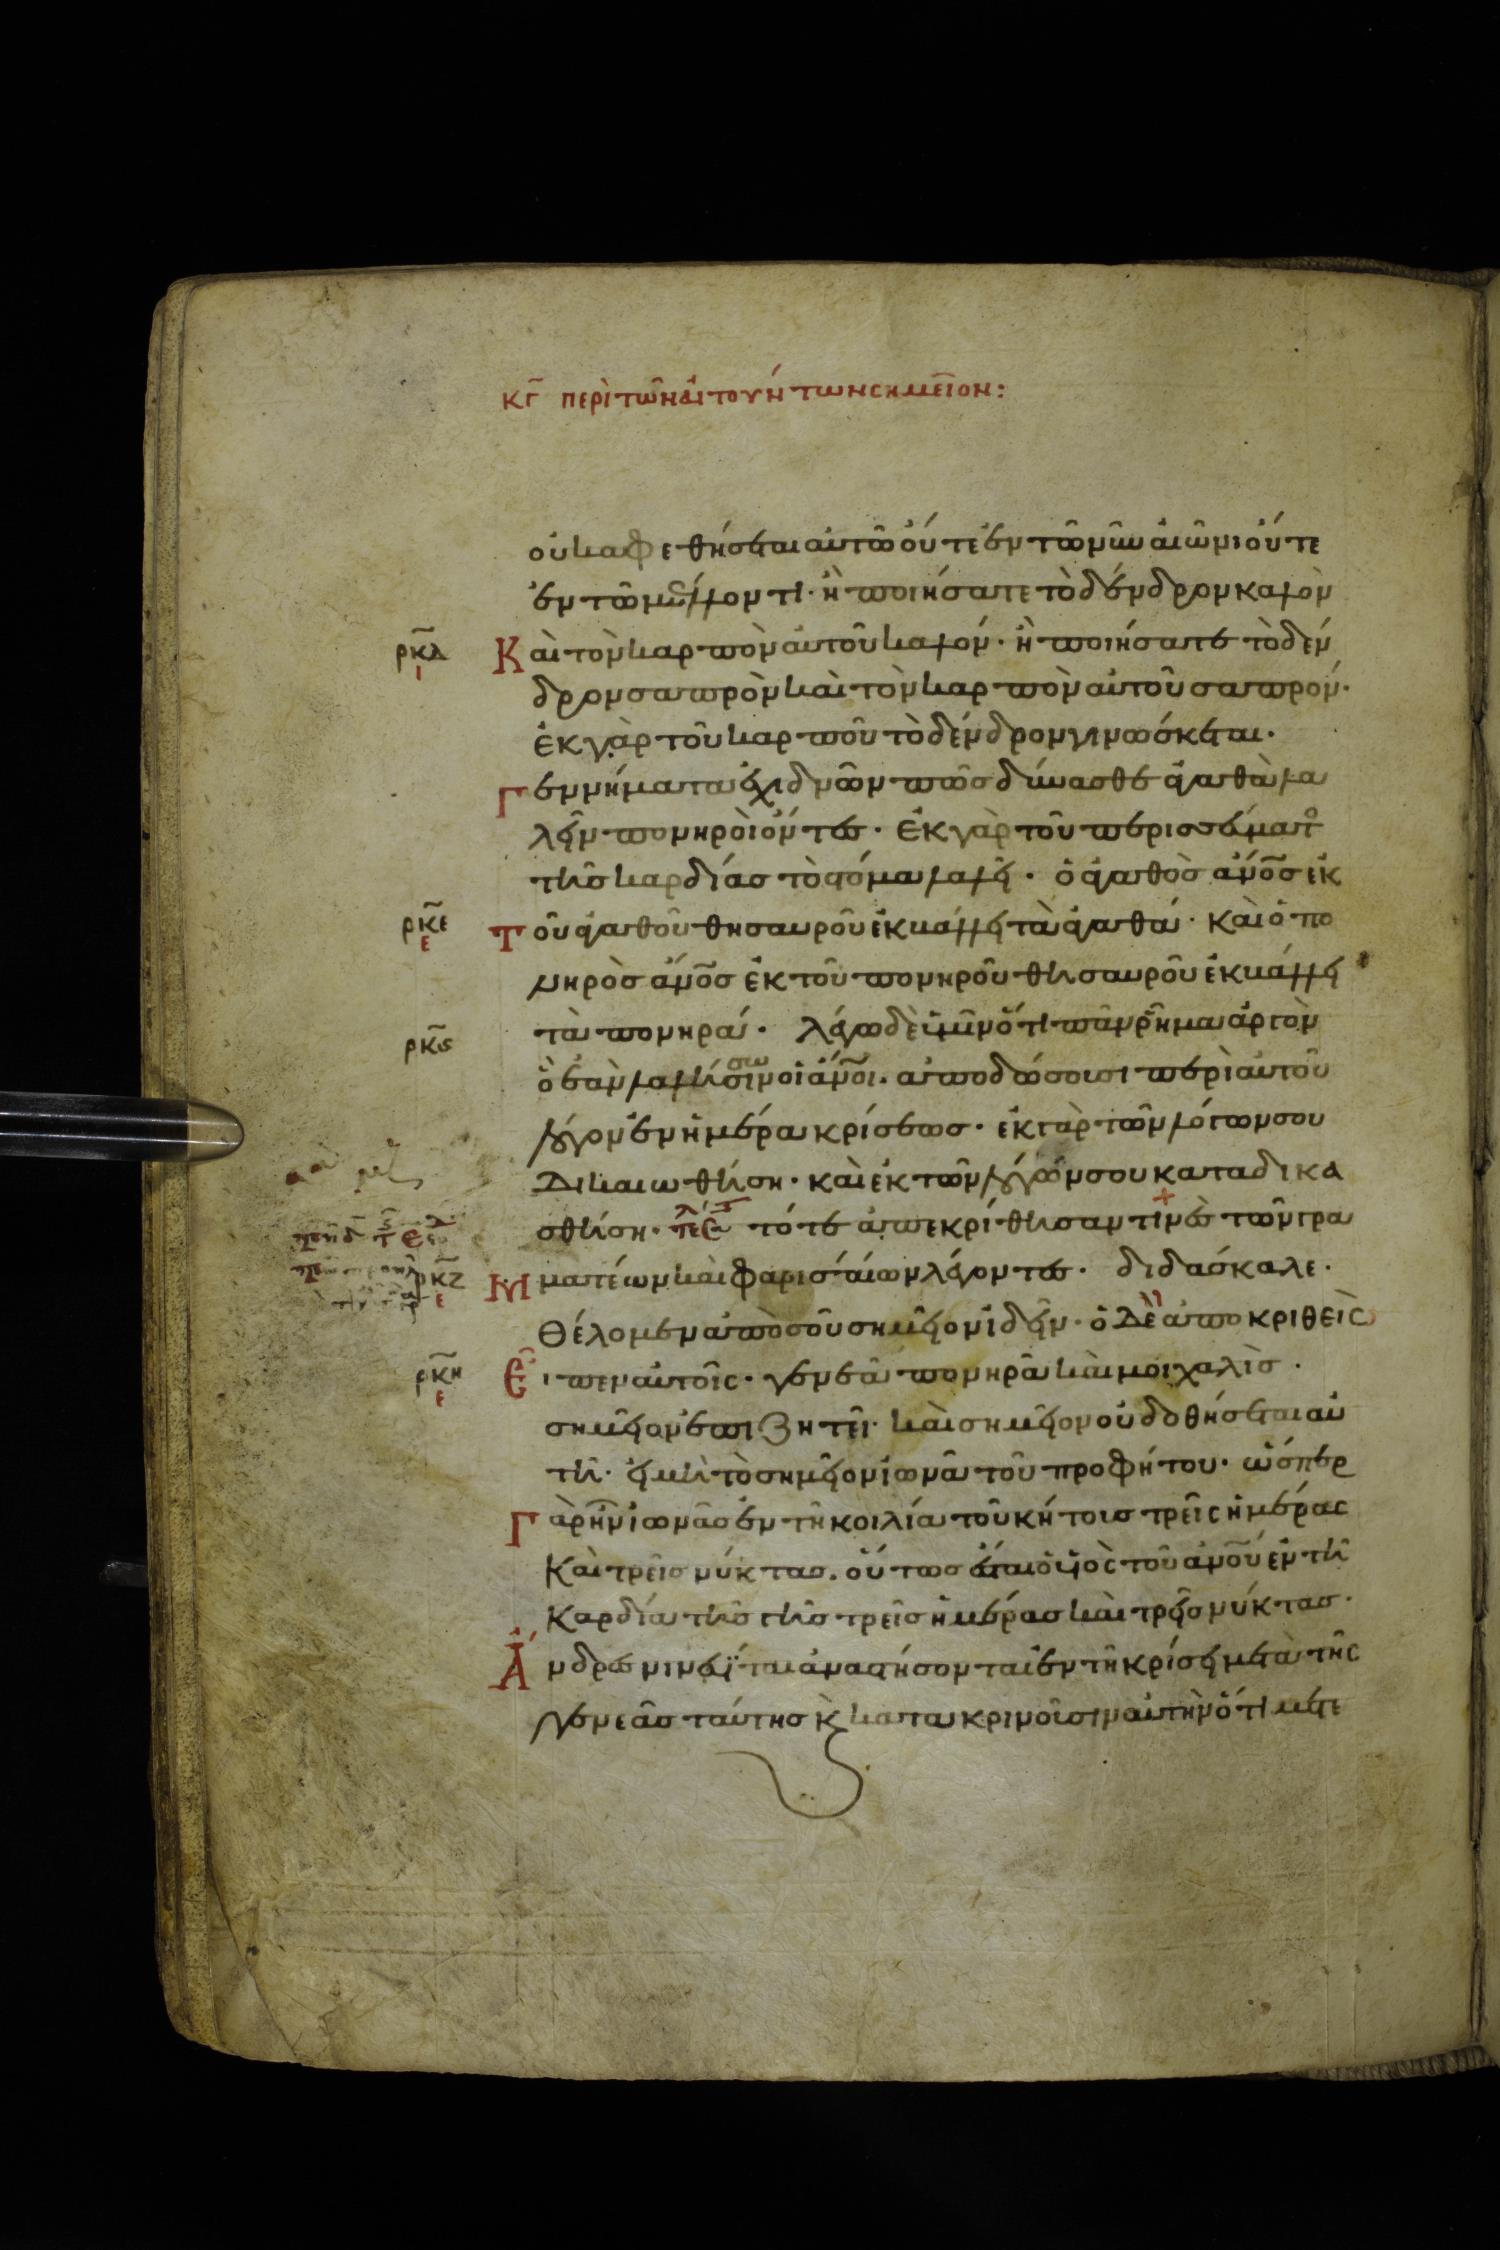 κγ περὶ τῶν αἰτούντων σημεῖον:
οὐκ ἀφεθήσεται αὐτῶ οὔτε ἐν τῶ νῦν αἰῶνι οὔτε
ἐν τῶ μέλλοντι· ἢ ποιήσατε τὸ δένδρον καλὸν
ρκδ ι Καὶ τὸν καρπὸν αὐτοῦ καλόν· ἢ ποιήσατε τὸ δέν
δρον σαπρὸν καὶ τὸν καρπὸν αὐτοῦ σαπρόν·
ἐκ γὰρ τοῦ καρποῦ τὸ δένδρον γινώσκεται·
Γεννήματα ἐχιδνῶν πῶς δύνασθε ἀγαθὰ λα
λεῖν πονηροὶ ὄντες· ἐκ γὰρ τοῦ περισσεύματο
τῆς καρδίας τὸ στόμα λαλεῖ· ὁ ἀγαθὸς ἄνος ἐκ
ρκε ε Τοῦ ἀγαθοῦ θησαυροῦ ἐκβάλλει τὰ ἀγαθά· καὶ ὁ πο
νηρὸς ἄνος ἐκ τοῦ πονηροῦ θησαυροῦ ἐκβάλλει
ρκς τὰ πονηρά· λέγω δὲ ὑμῖν ὅτι πᾶν ῥῆμα ἀργὸν
ὃ ἐὰν λαλήσωσιν οἱ ἄνοι· ἀποδώσουσι περὶ αὐτοῦ
λόγον ἐν ἡμέρα κρίσεως· ἐκ γὰρ τῶν λόγων σου
Δικαιωθήση· καὶ ἐκ τῶν λόγων σου καταδικα
σθήση· τότε ἀπεκρίθησαν τινὲς τῶν γρα
ρκζ ε Μματέων καὶ φαρισαίων λέγοντες· διδάσκαλε·
Θέλομεν ἀπὸ σοῦ σημεῖον ἰδεῖν· ὁ Δὲ ἀποκριθεὶς
ρκη ε Εἶπεν αὐτοῖς· γενεὰ πονηρὰ καὶ μοιχαλὶς·
σημεῖον ἐπιζητεῖ· καὶ σημεῖον οὐ δοθήσεται αὐ
τῆ· εἰ μὴ τὸ σημεῖον ἰωνᾶ τοῦ προφήτου· ὥσπερ
Γὰρ ἦν ἰωνᾶς ἐν τῆ κοιλία τοῦ κήτους τρεῖς ἡμέρας
Καὶ τρεῖς νύκτας· οὕτως ἔσται ὁ ὑιὸς τοῦ ἀνου ἐν τῆ
Καρδία τῆς γῆς τρεῖς ἡμέρας καὶ τρεῖς νύκτας·
Ἄνδρες νινευῖται ἀναστήσονται ἐν τῆ κρίσει μετὰ τῆς
γενεᾶς ταύτης κὶ κατακρινοῦσιν αὐτὴν ὅτι μετε